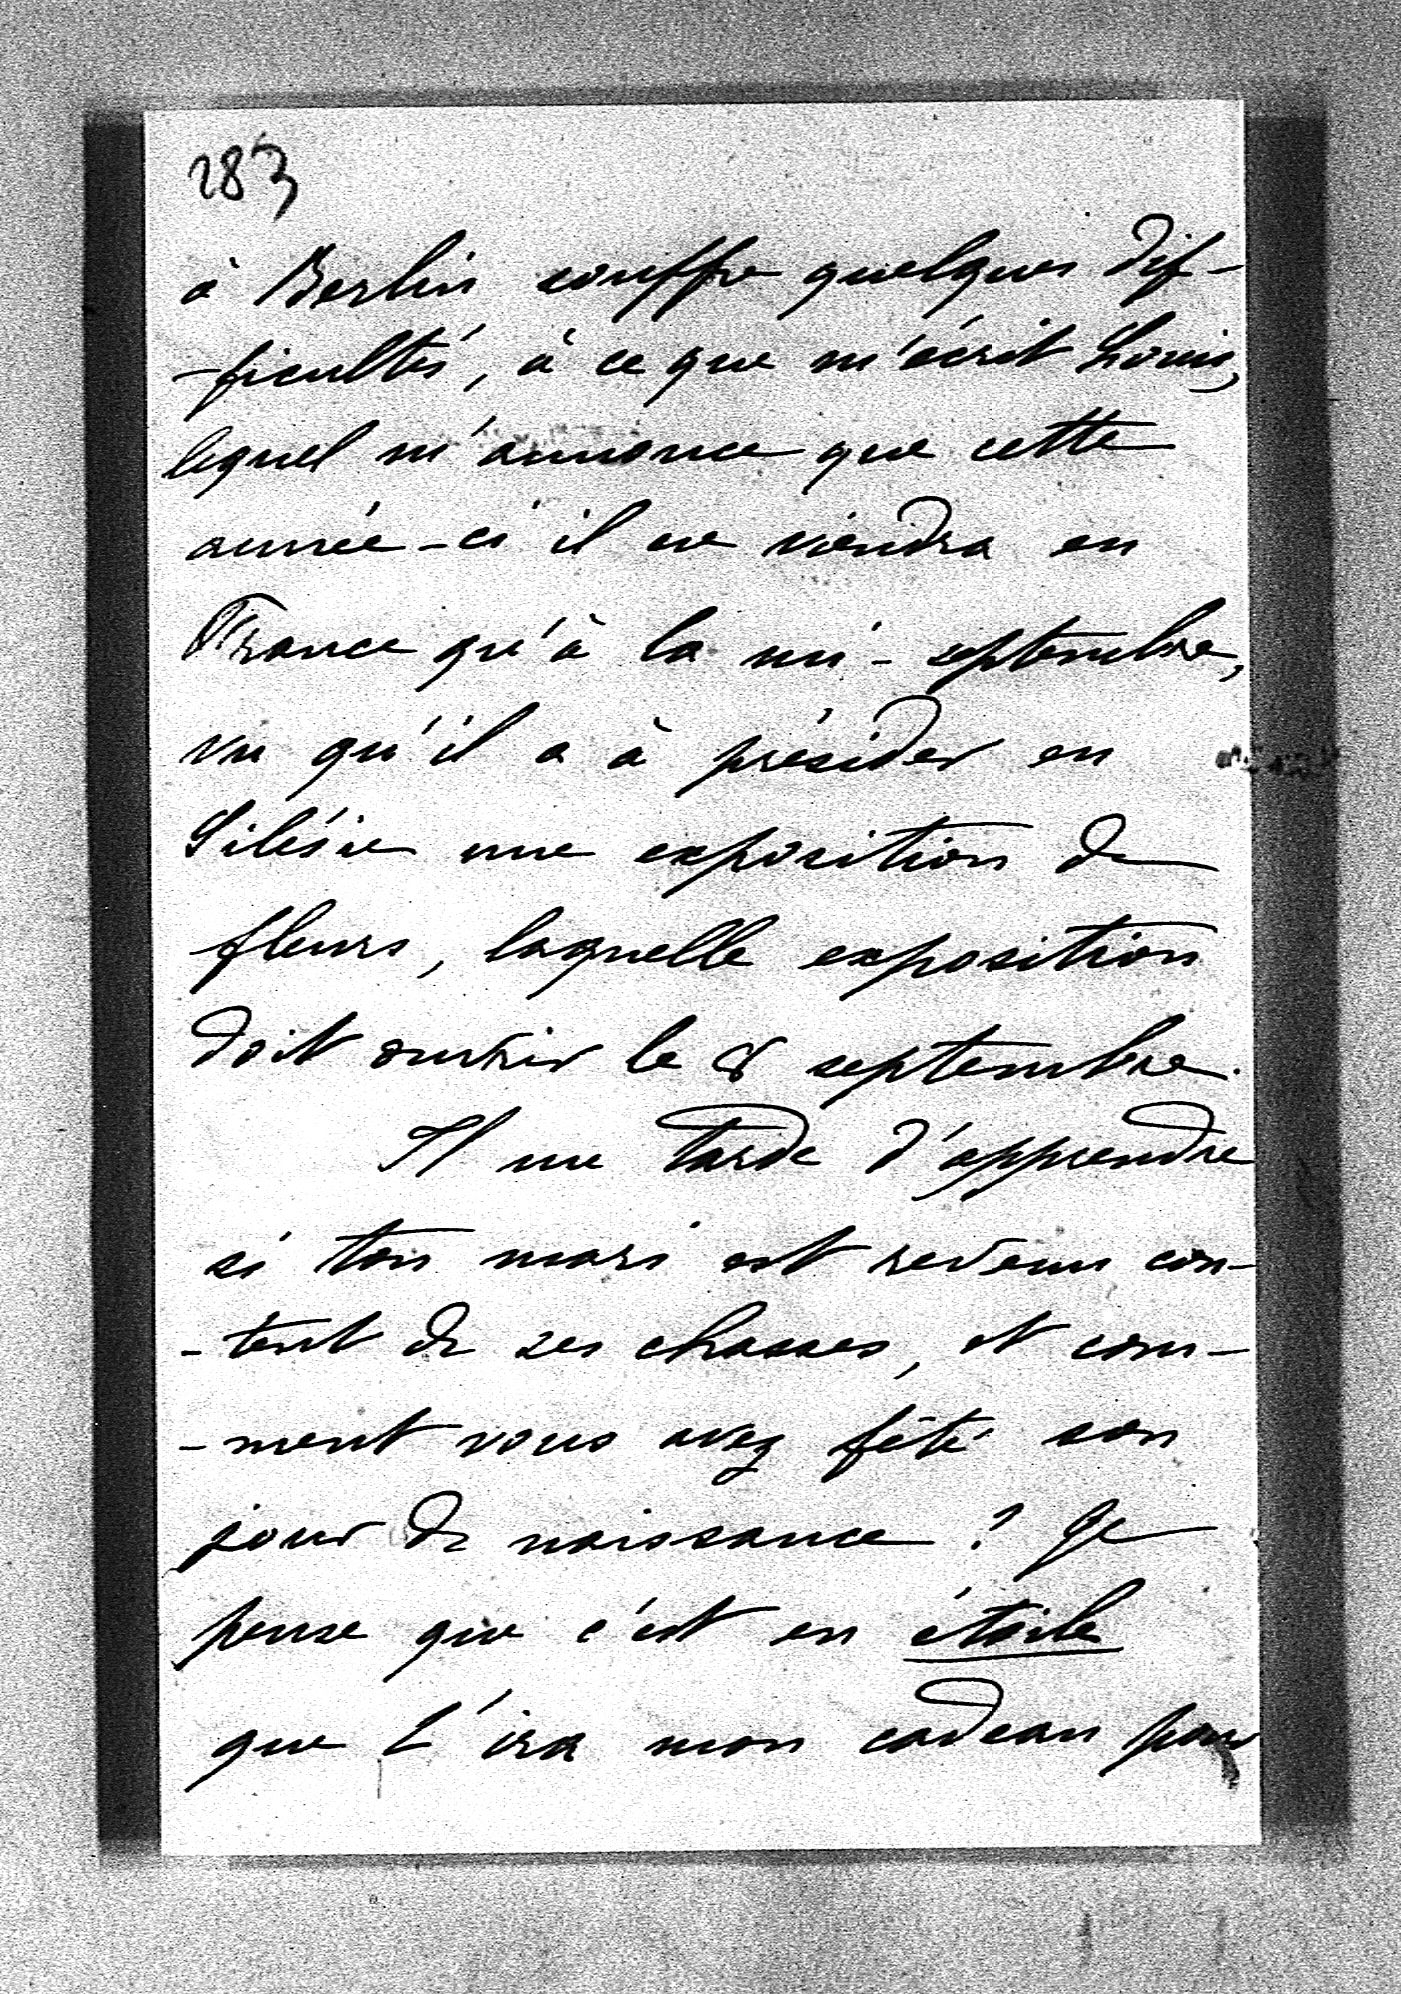 283
à Berlin souffre quelques dif-
-ficultés, à ce que m'écrit Louis,
lequel m'annonce que cette
année-ci il ne viendra en
France qu'à la mi-septembre,
vu qu'il a à présider en
Silésie une exposition de
fleurs, laquelle exposition
doit ouvrir le 8 septembre.
Il me tarde d'apprendre
si ton mari est revenu con-
-tent de ses chasses, et com-
-ment vous avez fêté son
jour de naissance? Je
pense que c'est en étoile
que t'ira mon cadeau pour